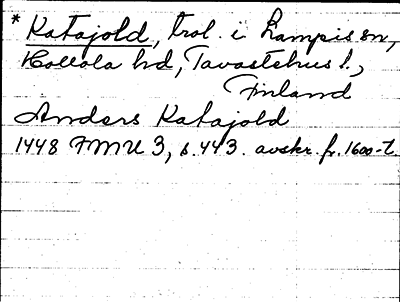 * Katajold, trol. i Lampis sn,
Hollola hd, Tavastehus l.,
Finland
Anders Katajold
1448 FMU 3, s. 443. avskr. fr. 1600-t.